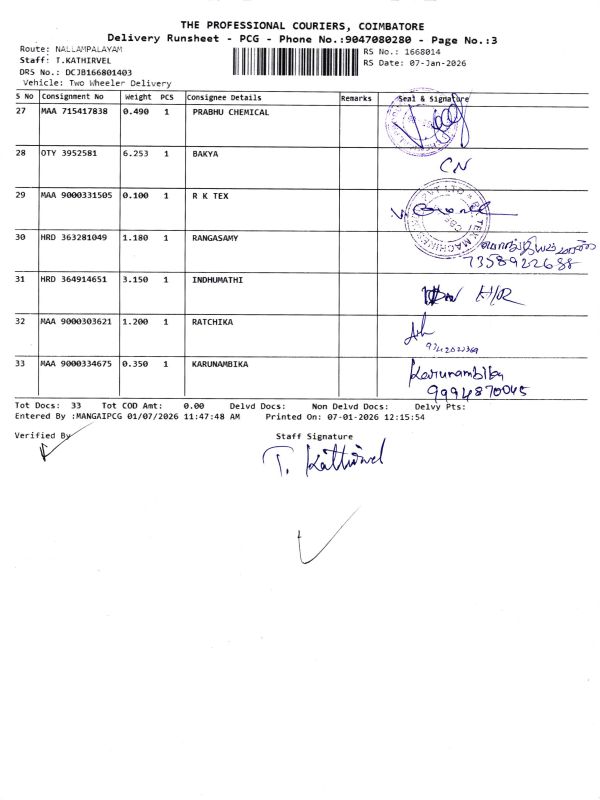 THE PROFESSIONAL COURIERS, COIMBATORE
Delivery Runsheet - PCG - Phone No.:9047080280 - Page No.:3
Route: NALLAMPALAYAM
RS No.: 1668014
Staff: T.KATHIRVEL
RS Date: 07-Jan-2026
DRS No.: DCJB166801403
Vehicle: Two Wheeler Delivery
S No Consignment No Weight PCS Consignee Details Remarks Seal & Signature
27 MAA 715417838 0.490 1 PRABHU CHEMICAL
28 OTY 3952581 6.253 1 BAKYA
CN
29 MAA 9000331505 0.100 1 R K TEX
30 HRD 363281049 1.180 1 RANGASAMY
7358922688
31 HRD 364914651 3.150 1 INDHUMATHI
H/R
32 MAA 9000303621 1.200 1 RATCHIKA
33 MAA 9000334675 0.350 1 KARUNAMBIKA
Karunambika
9994870045
Tot Docs: 33 Tot COD Amt: 0.00 Delvd Docs: Non Delvd Docs: Delvy Pts:
Entered By :MANGAIPCG 01/07/2026 11:47:48 AM Printed On: 07-01-2026 12:15:54
Verified By
Staff Signature
T. Kathirvel